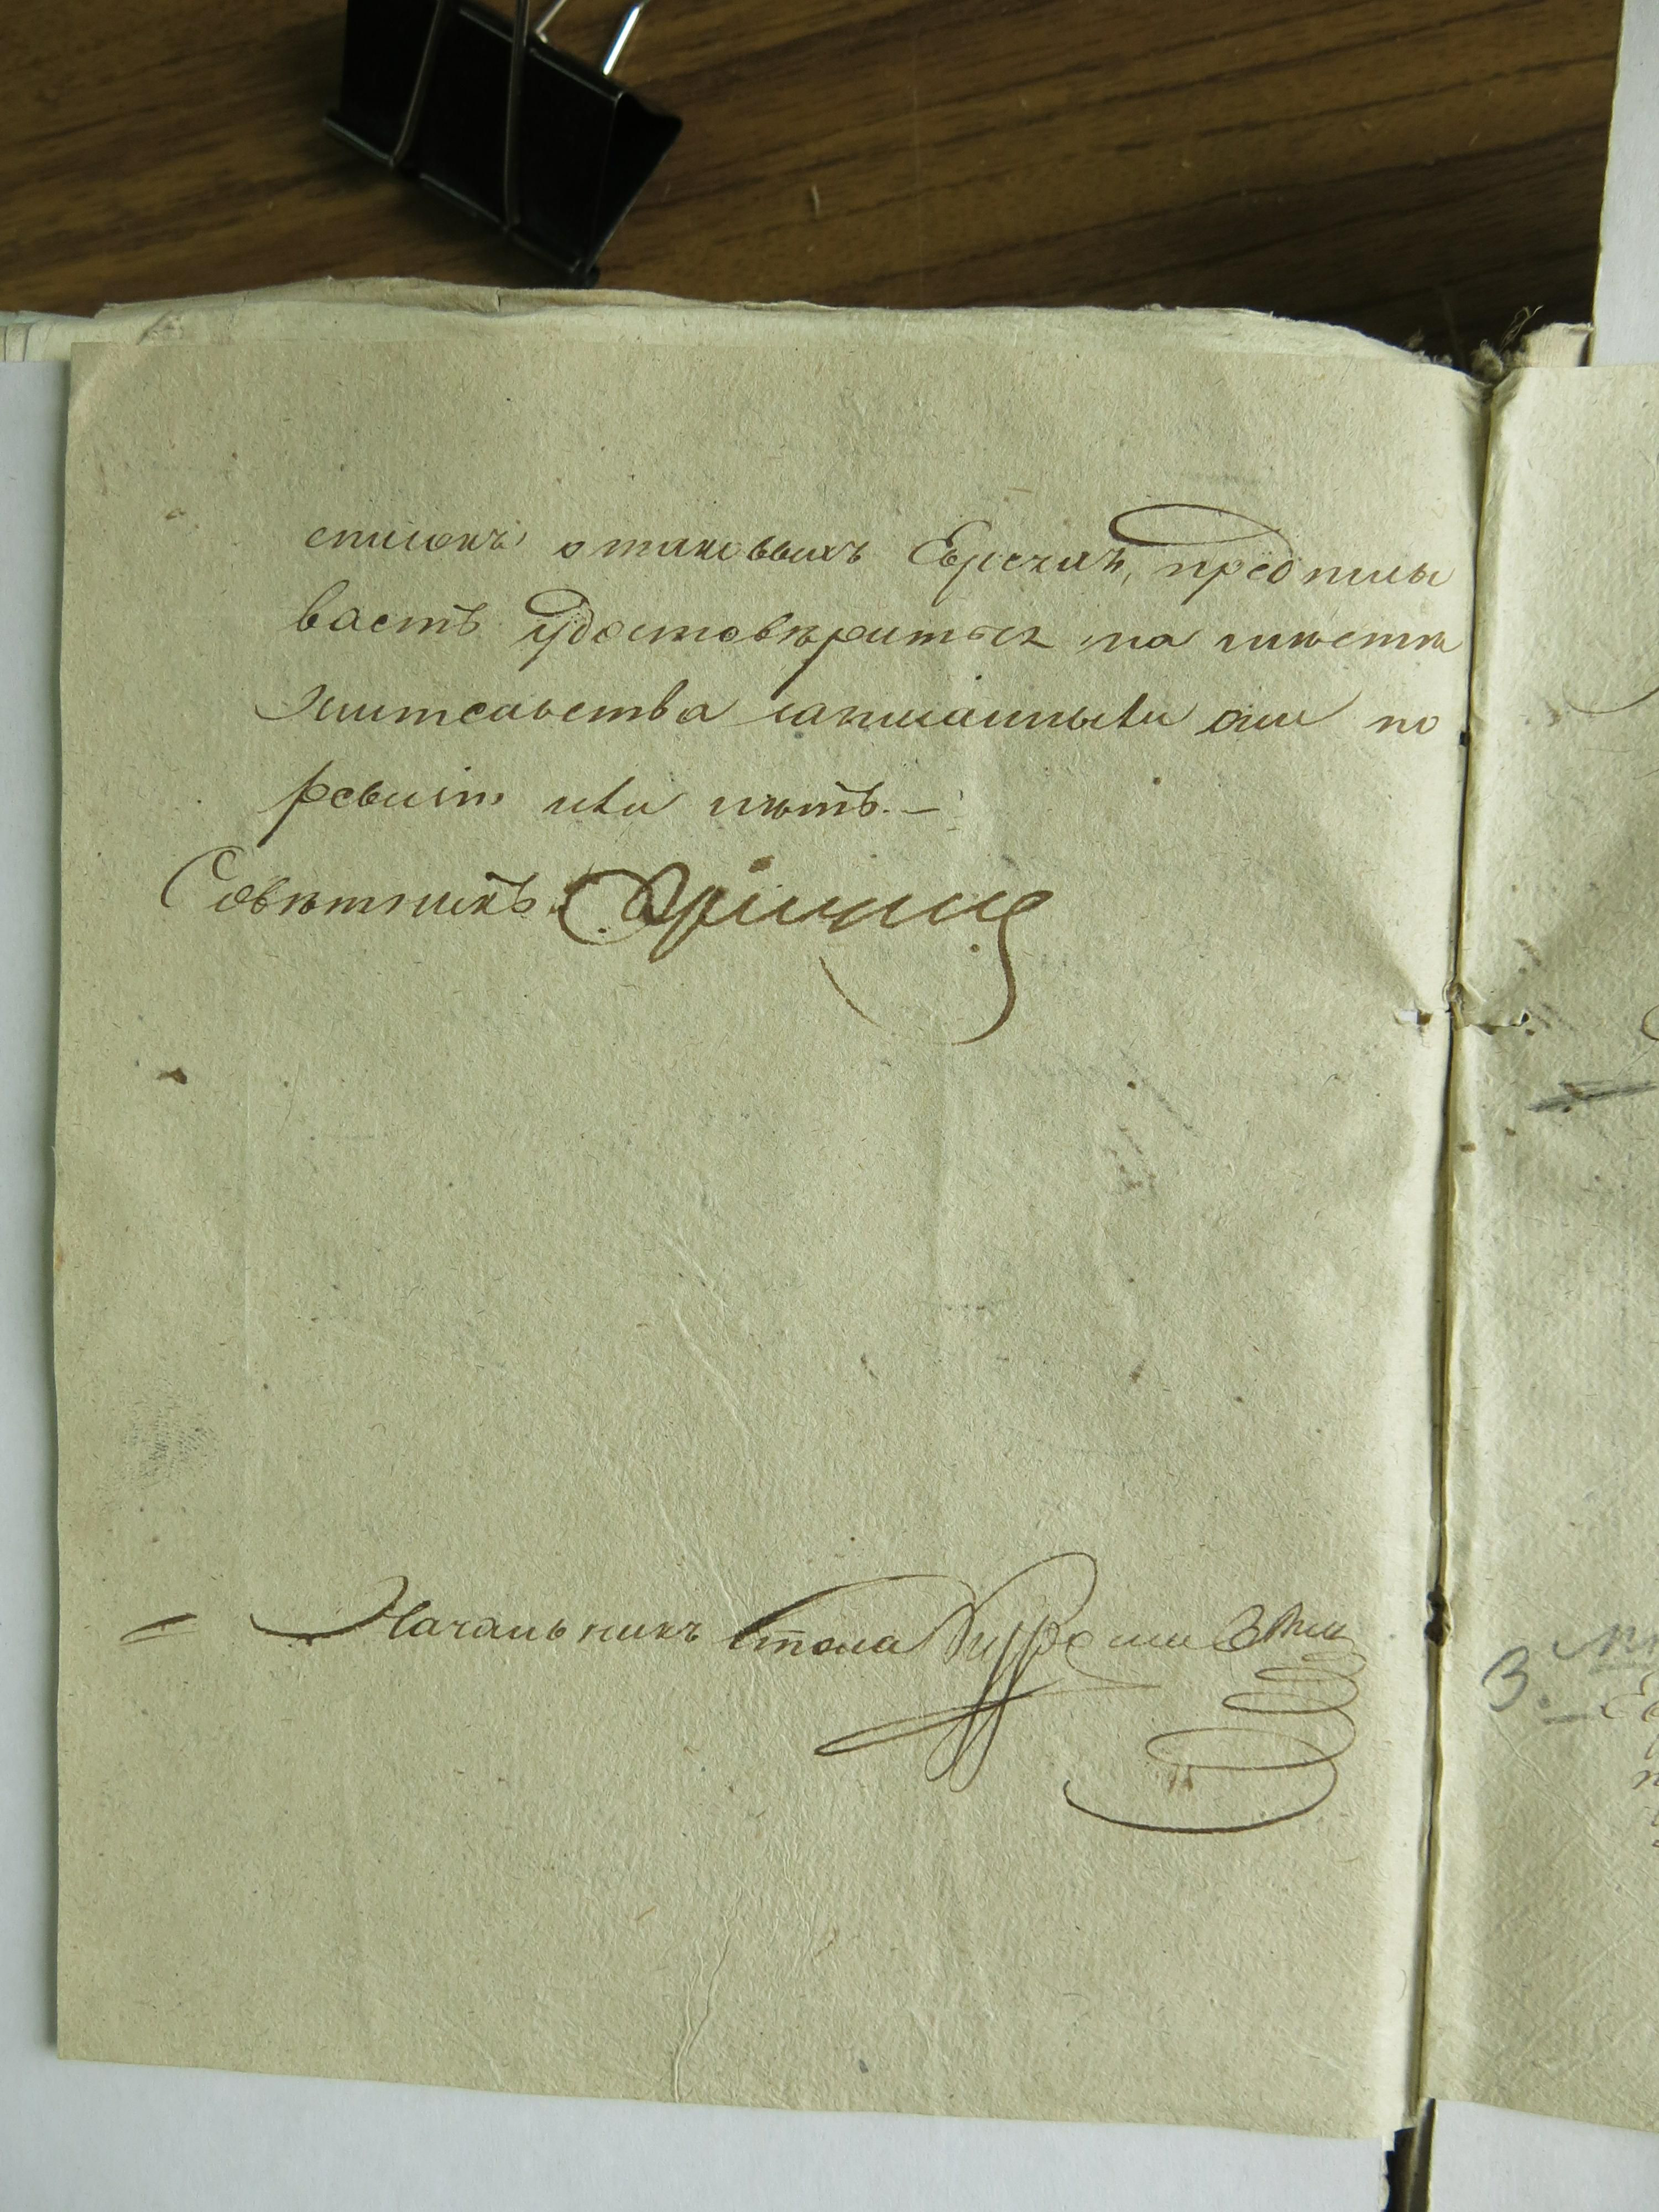 списокъ о таковыхъ Евреяхъ, предписы
ваетъ удостовѣриться на мѣстѣ
жительства записанныли они по
ревизіи или нѣтъ. —
Совѣтникъ
Начальникъ стола
3.